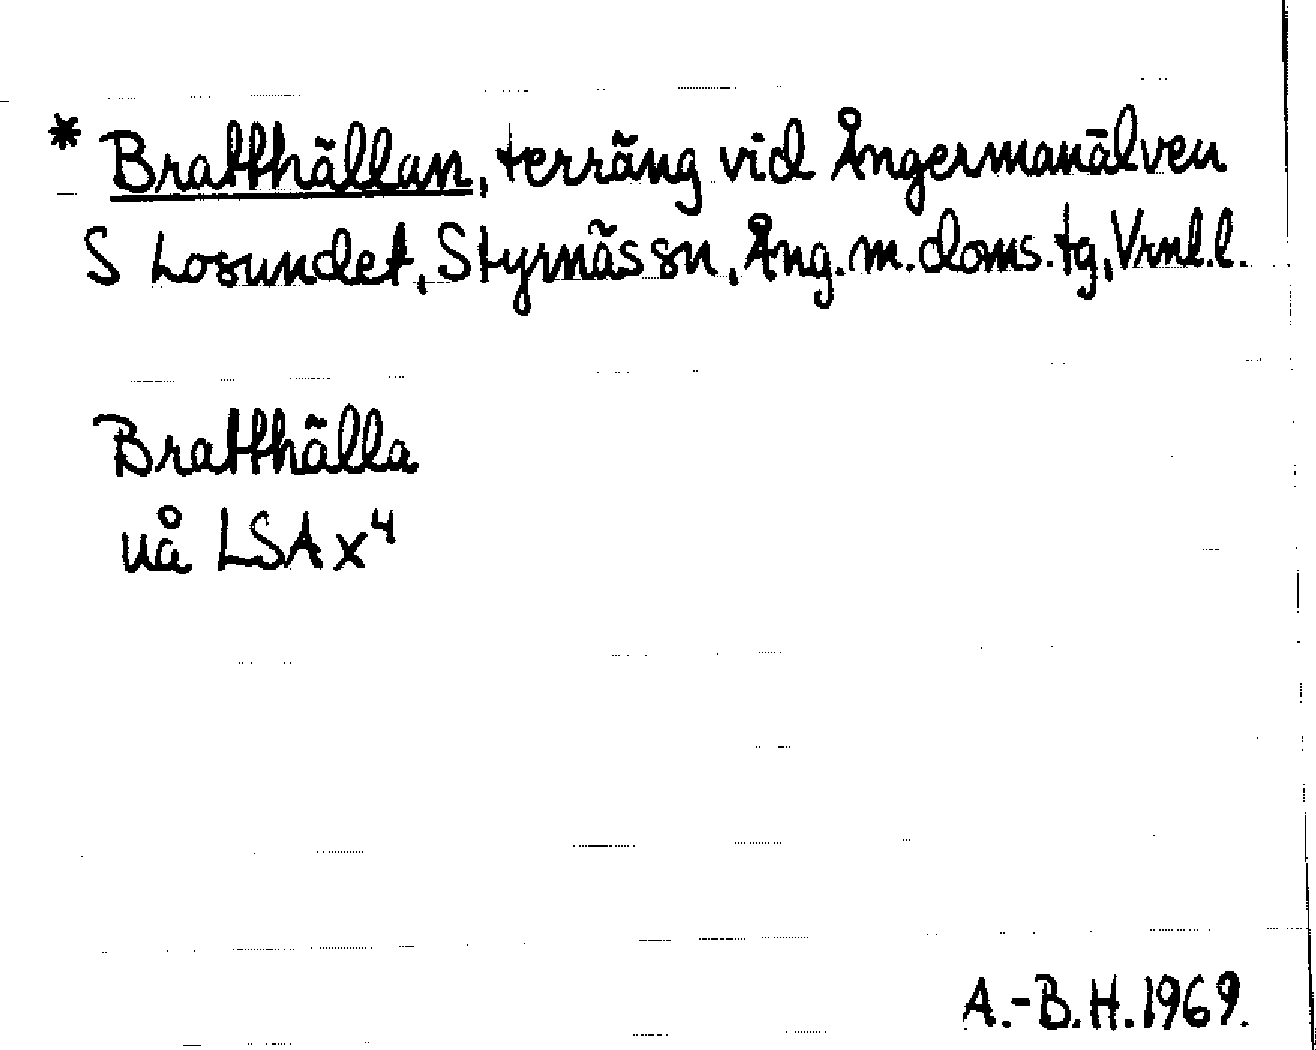 * Bratthällan, terräng vid Ångermanälven
S Losundet, Styrnäs sn, Ång.m.doms.tg, Vrnl.l.
Bratthälla
uå LSA x⁴
A.-B.H.1969.